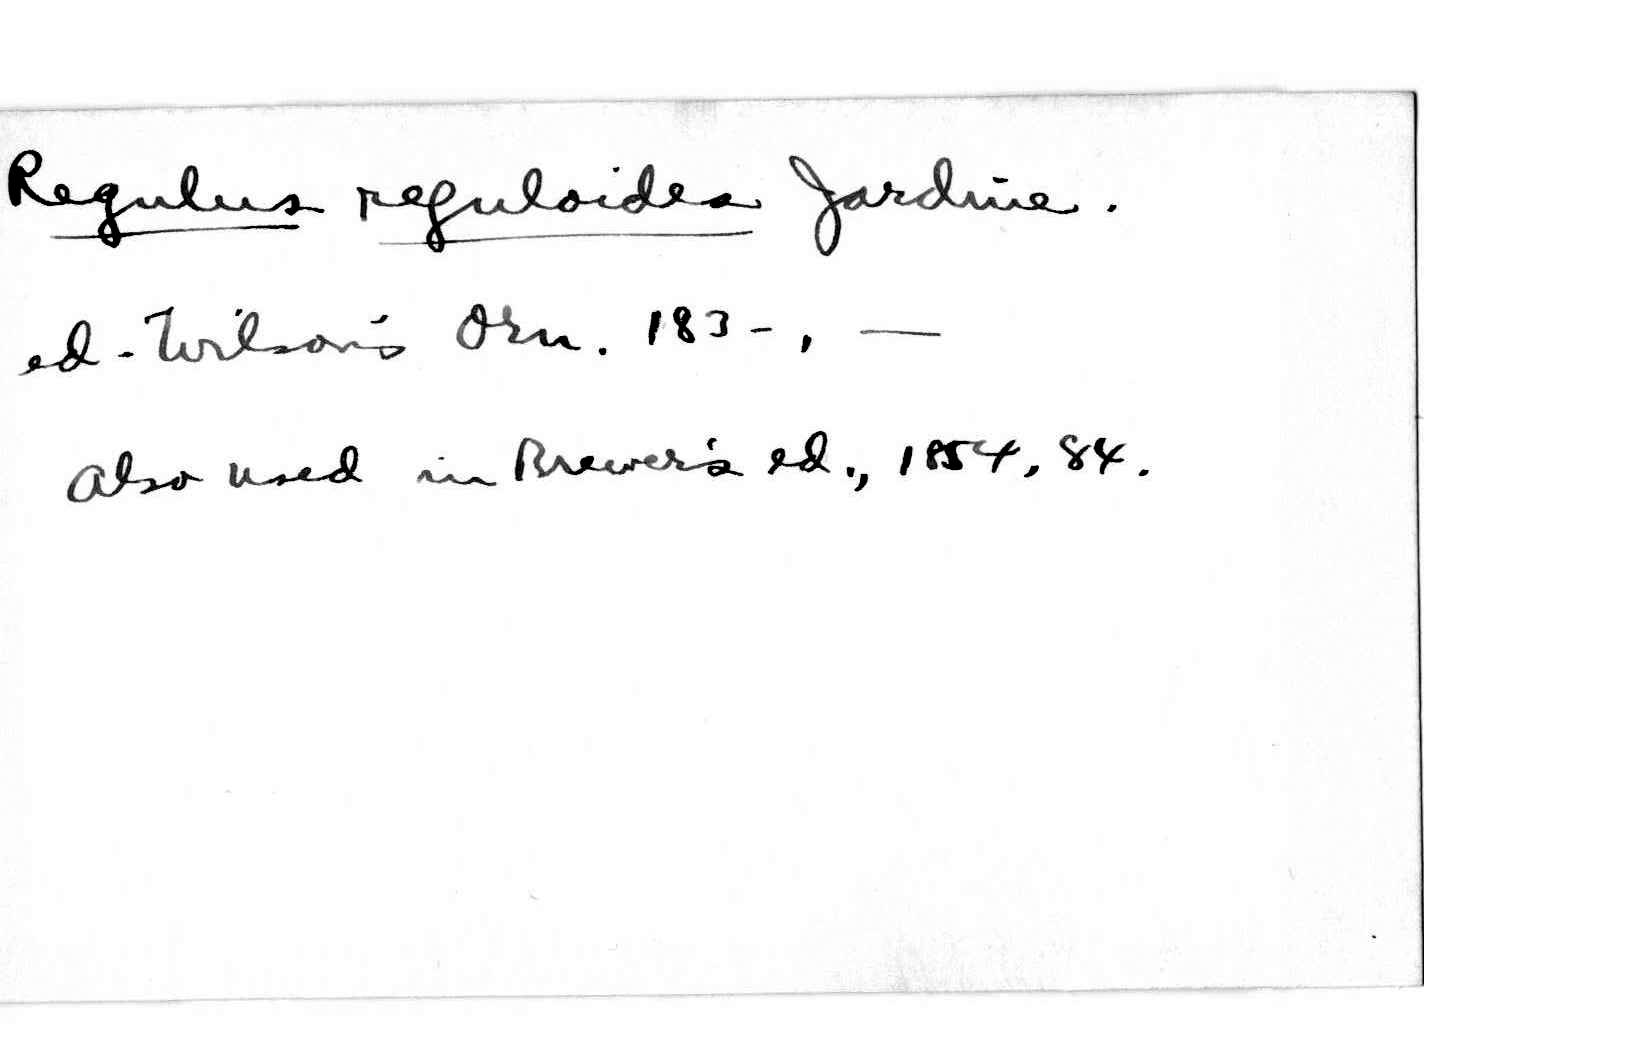 Regulus reguloides Jardine.
ed. Wilson's Orn. 183-, —
Also used in Brewer's ed., 1854, 84.